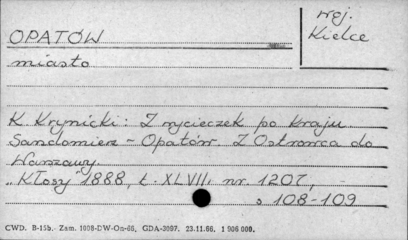 woj.
Kielce
OPATÓW
miasto
K. Krynicki: Z wycieczek po kraju
Sandomierz - Opatów. Z Ostrowca do
Warszawy.
"Kłosy" 1888, t. XLVII, nr. 1207,
s 108-109
CWD. B-15b.- Zam. 1008-DW-On-66. GDA-3097. 23.11.66. 1 906 000.